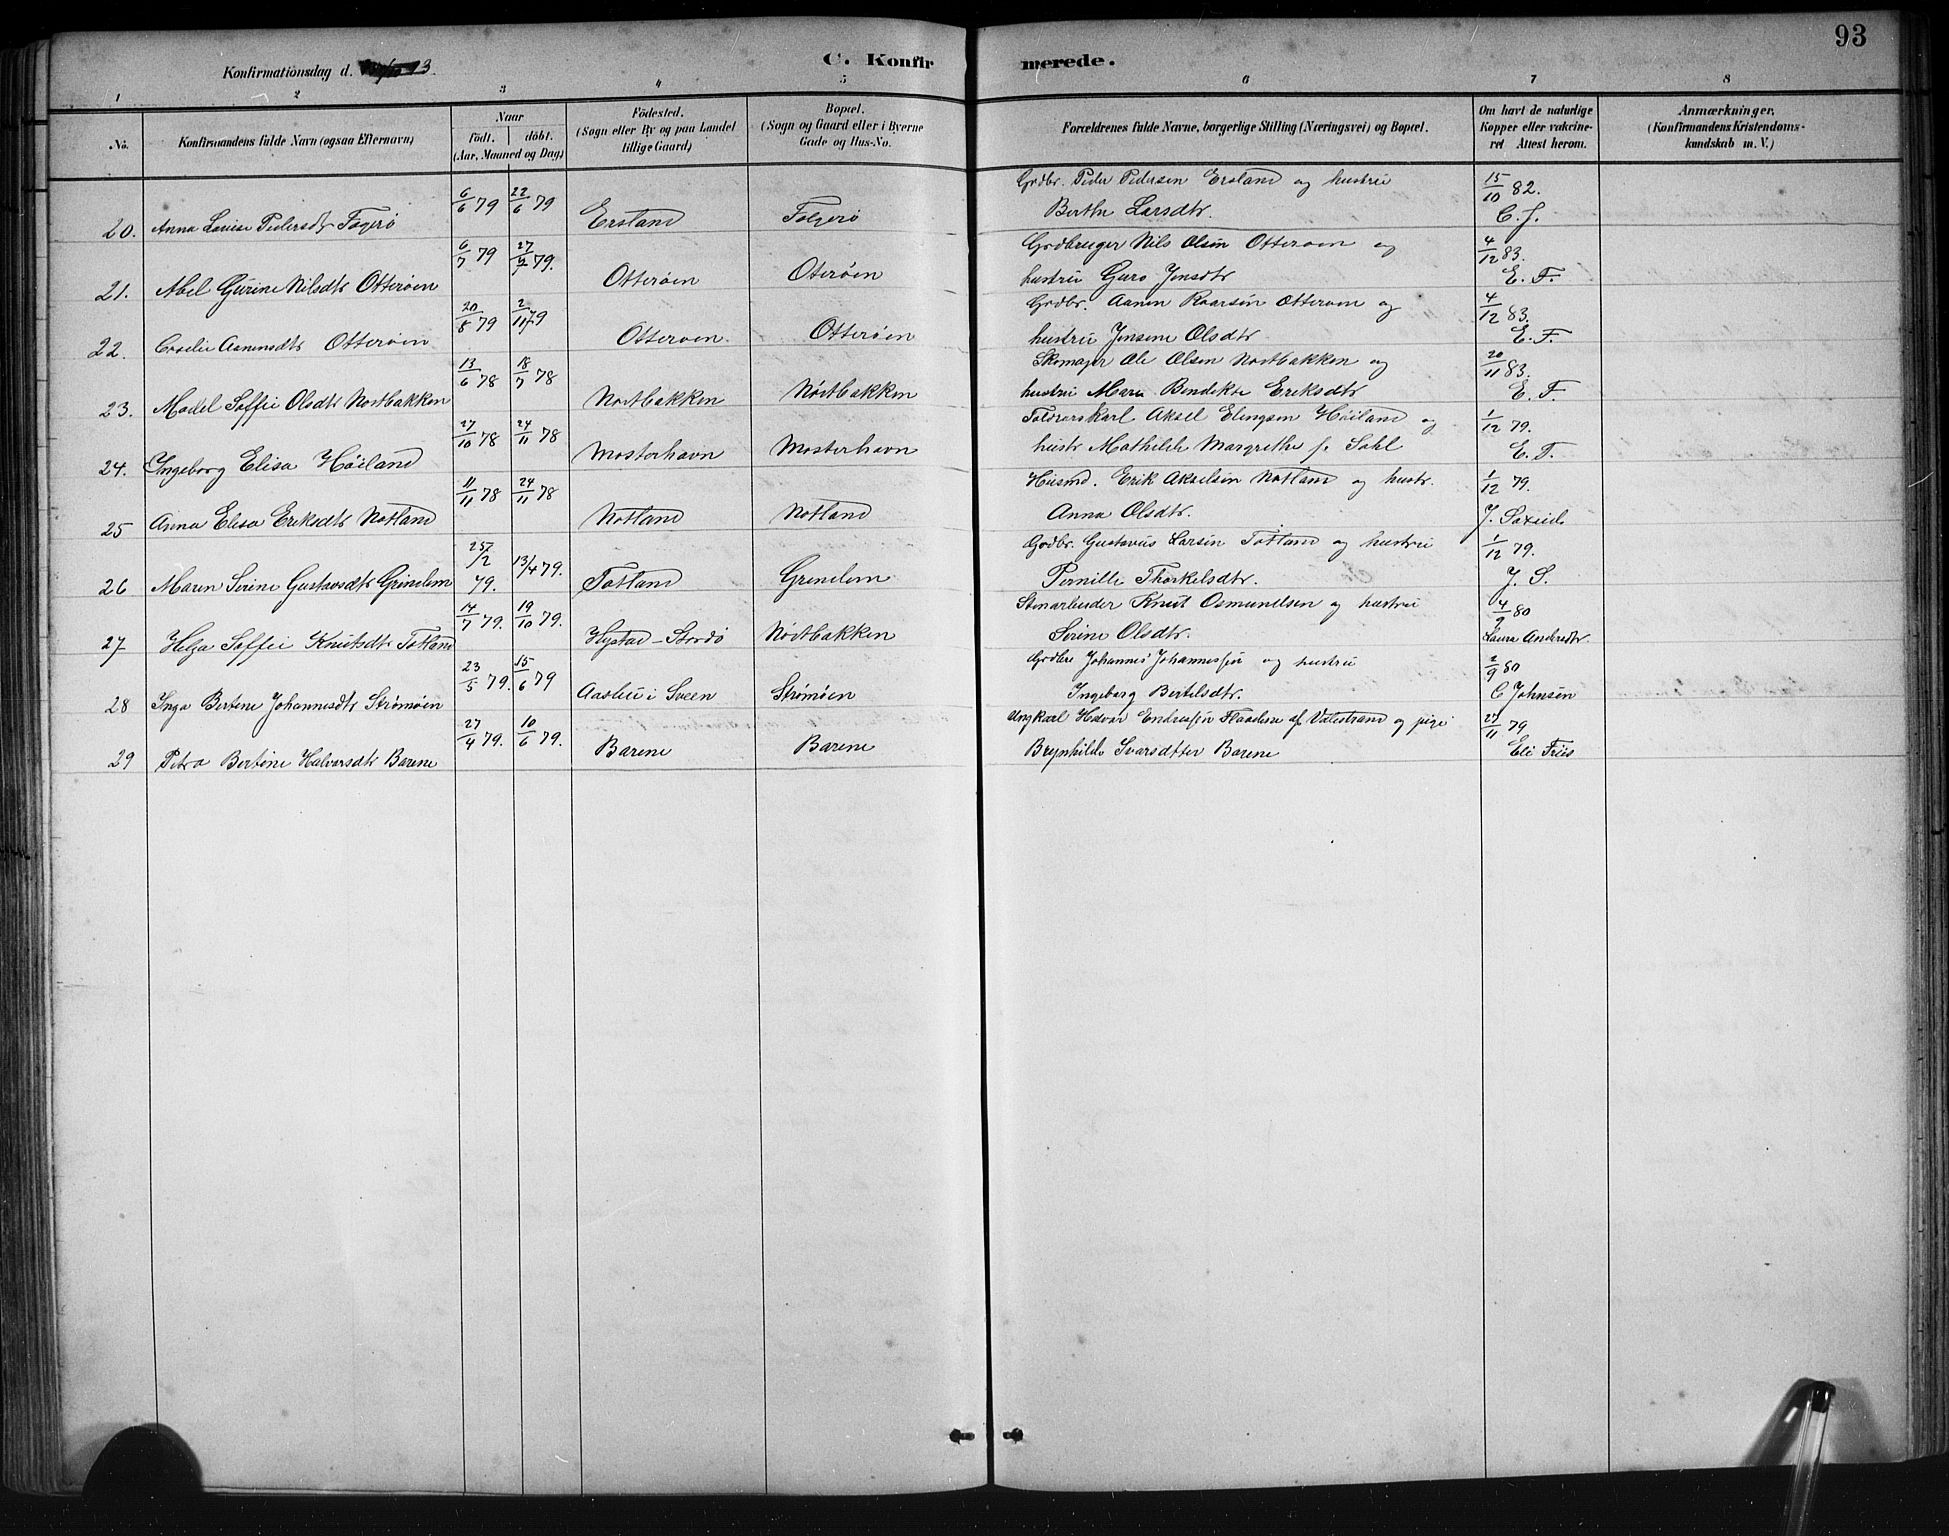 93
Konfirmationsdag d. 93.
C. Konfirmerede.
1 2 3 4 5 6 7 8
No.
Konfirmandens fulde Navn (ogsaa Efternavn)
Naar
födt. döbt.
(Aar, Maaned og Dag)
Födested.
(Sogn eller By og paa Landet
tillige Gaard)
Bopæl.
(Sogn og Gaard eller i Byerne
Gade og Hus-No.
Forældrenes fulde Navne, borgerlige Stilling (Næringsvei) og Bopæl.
Om havt de naturlige
Kopper eller vakcine-
ret Attest herom.
Anmærkninger,
(Konfirmandens Kristendoms-
kundskab m. V.)
20. Anna Lovise Pedersdtr Fögerö 6/6 79 22/6 79 Ersland Folgerö Grdbr. Peder Pedersen Ersland og hustrü 15/10 82.
Berthe Larsdtr. C. J.
21. Abel Gurine Nilsdtr Otteröen 6/7 79 27/7 79. Otteröen Oteröen Grdbruger Nils Olsen Otteröen og 4/12 83.
hustrü Guro Jensdtr E. F.
22. Aanensdtr Otteröen 20/8 79 2/11 79 Otteröen. Otteröen Grdbr. Aanen Roarsen Otteröen og 4/12 83.
hustrü Jensene Olsdtr E. F.
23. Madel Soffie Olsdtr Nostbakken 13/6 78 18/7 78 Nostbakken Nöstbakken Skomager Ole Olsen Nostbakken og 20/11 83.
hustrü Maren Bendikte Eriksdtr E. F.
24. Ingeborg Elisa Höiland 27/10 78 24/11 78 Mosterhavn Mosterhavn Toldrorskarl Aksel Elingsen Höiland og 1/12 79.
hustr Mathilde Margrethe f. Sahl E. F.
25 Anna Elisa Eriksdtr Notland 11/11 78 24/11 78 Notland Notland Husmd. Erik Akselsen Notland og hustr. 1/12 79.
Anna Olsdtr. J. Sæxeid
26 Maren Serine Gustavsdtr Grindem 25/2 79. 13/4 79. Totland Grindem Grdbr. Gustavus Larsen Totland og hustrü 1/12 79.
Pernille Thorkelsdtr. J. S.
27 Helga Soffie Knutsdtr Totland 14/7 79. 19/10 79. Hystad-Stordö Nöstbakken Stenarbeider Knut Osmundsen og hustrü 4/9 80
Serine Olsdtr. Laura Andersdtr
28 Inga Bertine Johannesdtr Strömöen 23/5 79. 15/6 79 Aasbu i Sveen Strömöen Grdbr Johannes Johannessen og hustrü 2/9 80
Ingeborg Bertelsdtr. C Johnsen
29 Petra Bertine Halvorsdtr Barene 27/4 79. 10/6 79. Barene Barene Ungkarl Halvor Endresen Flaadene af Valestrand og pige 27/11 79
Brynhilde Ivarsdtter Barene Eli Friis